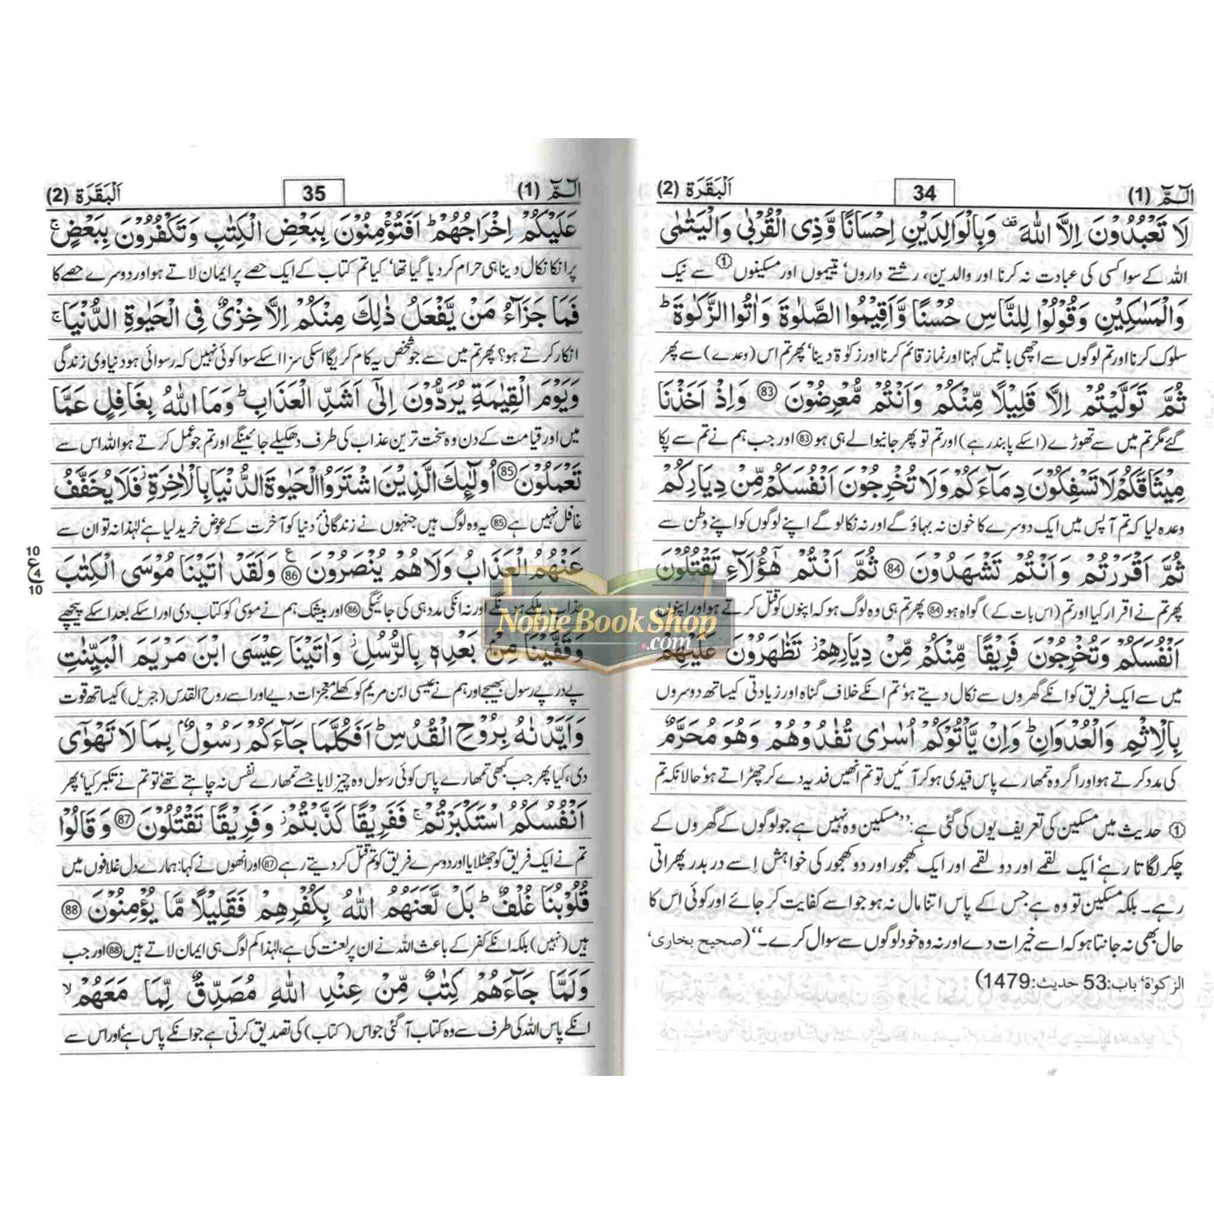 الٓمّٓ (1)
34
اَلْبَقَرَة (2)
لَا تَعْبُدُوْنَ اِلَّا اللّٰهَ ۫ وَبِالْوَالِدَيْنِ اِحْسَانًا وَّذِى الْقُرْبٰى وَالْيَتٰمٰى
اللہ کے سوا کسی کی عبادت نہ کرنا اور والدین، رشتے داروں، یتیموں اور مسکینوں ① سے نیک
وَالْمَسٰكِيْنِ وَقُوْلُوْا لِلنَّاسِ حُسْنًا وَّاَقِيْمُوا الصَّلٰوةَ وَاٰتُوا الزَّكٰوةَ ؕ
سلوک کرنا اور تم لوگوں سے اچھی باتیں کہنا اور نماز قائم کرنا اور زکوٰۃ دینا، پھر تم اس (وعدے) سے پھر
ثُمَّ تَوَلَّيْتُمْ اِلَّا قَلِيْلًا مِّنْكُمْ وَاَنْتُمْ مُّعْرِضُوْنَ 83 وَاِذْ اَخَذْنَا
گئے مگر تم میں سے تھوڑے (اسکے پابند رہے) اور تم تو پھر جانیوالے ہی ہو 83 اور جب ہم نے تم سے پکا
مِيْثَاقَكُمْ لَا تَسْفِكُوْنَ دِمَآءَكُمْ وَلَا تُخْرِجُوْنَ اَنْفُسَكُمْ مِّنْ دِيَارِكُمْ
وعدہ لیا کہ تم آپس میں ایک دوسرے کا خون نہ بہاؤ گے اور نہ نکالو گے اپنے لوگوں کو اپنے وطن سے
ثُمَّ اَقْرَرْتُمْ وَاَنْتُمْ تَشْهَدُوْنَ 84 ثُمَّ اَنْتُمْ هٰٓؤُلَآءِ تَقْتُلُوْنَ
پھر تم نے اقرار کیا اور تم (اس بات کے) گواہ ہو 84 پھر تم ہی وہ لوگ ہو کہ اپنوں کو قتل کرتے ہو اور اپنوں
اَنْفُسَكُمْ وَتُخْرِجُوْنَ فَرِيْقًا مِّنْكُمْ مِّنْ دِيَارِهِمْ ؗ تَظٰهَرُوْنَ عَلَيْهِمْ
میں سے ایک فریق کو انکے گھروں سے نکال دیتے ہو، تم انکے خلاف گناہ اور زیادتی کیساتھ دوسروں
بِالْاِثْمِ وَالْعُدْوَانِ ؕ وَاِنْ يَّاْتُوْكُمْ اُسٰرٰى تُفٰدُوْهُمْ وَهُوَ مُحَرَّمٌ
کی مدد کرتے ہو اور اگر وہ تمہارے پاس قیدی ہو کر آئیں تو تم انھیں فدیہ دے کر چھڑاتے ہو، حالانکہ تم
① حدیث میں مسکین کی تعریف یوں کی گئی ہے: "مسکین وہ نہیں ہے جو لوگوں کے گھروں کے
چکر لگاتا رہے، ایک لقمے اور دو لقمے اور ایک کھجور اور دو کھجور کی خواہش اسے در بدر پھراتی
رہے۔ بلکہ مسکین تو وہ ہے جس کے پاس اتنا مال نہ ہو جو اسے کفایت کر جائے اور کوئی اس کا
حال بھی نہ جانتا ہو کہ اسے خیرات دے اور نہ وہ خود لوگوں سے سوال کرے۔" (صحیح بخاری،
الزکوۃ، باب:53 حدیث:1479)
الٓمّٓ (1)
35
اَلْبَقَرَة (2)
عَلَيْكُمْ اِخْرَاجُهُمْ ؕ اَفَتُؤْمِنُوْنَ بِبَعْضِ الْكِتٰبِ وَتَكْفُرُوْنَ بِبَعْضٍ ۚ
پر انکا نکال دینا ہی حرام کر دیا گیا تھا، کیا تم کتاب کے ایک حصے پر ایمان لاتے ہو اور دوسرے حصے کا
فَمَا جَزَآءُ مَنْ يَّفْعَلُ ذٰلِكَ مِنْكُمْ اِلَّا خِزْىٌ فِى الْحَيٰوةِ الدُّنْيَا ۚ
انکار کرتے ہو؟ پھر تم میں سے جو شخص یہ کام کریگا اسکی سزا اسکے سوا کوئی نہیں کہ رسوائی ہو دنیاوی زندگی
وَيَوْمَ الْقِيٰمَةِ يُرَدُّوْنَ اِلٰٓى اَشَدِّ الْعَذَابِ ؕ وَمَا اللّٰهُ بِغَافِلٍ عَمَّا
میں اور قیامت کے دن وہ سخت ترین عذاب کی طرف دھکیلے جائینگے اور تم جو عمل کرتے ہو اللہ اس سے
تَعْمَلُوْنَ 85 اُولٰٓئِكَ الَّذِيْنَ اشْتَرَوُا الْحَيٰوةَ الدُّنْيَا بِالْاٰخِرَةِ ؗ فَلَا يُخَفَّفُ
غافل نہیں ہے 85 یہ وہ لوگ ہیں جنہوں نے زندگانی دنیا کو آخرت کے عوض خرید لیا ہے، لہٰذا نہ تو ان سے
عَنْهُمُ الْعَذَابُ وَلَا هُمْ يُنْصَرُوْنَ 86 وَلَقَدْ اٰتَيْنَا مُوْسَى الْكِتٰبَ
10 ع 4 10
عذاب ہلکے ہونگے اور نہ انکی مدد ہی کی جائیگی 86 اور بیشک ہم نے موسٰی کو کتاب دی اور اسکے بعد اسکے پیچھے
وَقَفَّيْنَا مِنْۢ بَعْدِهٖ بِالرُّسُلِ ؗ وَاٰتَيْنَا عِيْسَى ابْنَ مَرْيَمَ الْبَيِّنٰتِ
پے در پے رسول بھیجے اور ہم نے عیسٰی ابن مریم کو کھلے معجزات دیے اور اسے روح القدس (جبریل) کیساتھ قوت
وَاَيَّدْنٰهُ بِرُوْحِ الْقُدُسِ ؕ اَفَكُلَّمَا جَآءَكُمْ رَسُوْلٌۢ بِمَا لَا تَهْوٰٓى
دی، کیا پھر جب کبھی تمھارے پاس کوئی رسول وہ چیز لایا جسے تمھارے نفس نہ چاہتے تھے، تو تم نے تکبر کیا، پھر
اَنْفُسُكُمُ اسْتَكْبَرْتُمْ ۚ فَفَرِيْقًا كَذَّبْتُمْ ؗ وَفَرِيْقًا تَقْتُلُوْنَ 87 وَقَالُوْا
تم نے ایک فریق کو جھٹلایا اور دوسرے فریق کو تم قتل کر دیتے رہے 87 اور انھوں نے کہا: ہمارے دل غلافوں میں
قُلُوْبُنَا غُلْفٌ ؕ بَلْ لَّعَنَهُمُ اللّٰهُ بِكُفْرِهِمْ فَقَلِيْلًا مَّا يُؤْمِنُوْنَ 88
ہیں (نہیں) بلکہ انکے کفر کے باعث اللہ نے ان پر لعنت کی ہے، لہٰذا کم لوگ ہی ایمان لاتے ہیں 88 اور جب
وَلَمَّا جَآءَهُمْ كِتٰبٌ مِّنْ عِنْدِ اللّٰهِ مُصَدِّقٌ لِّمَا مَعَهُمْ ۙ
انکے پاس اللہ کی طرف سے وہ کتاب آ گئی جو اس (کتاب) کی تصدیق کرتی ہے جو انکے پاس ہے، اور اس سے
Noble Book Shop
.com